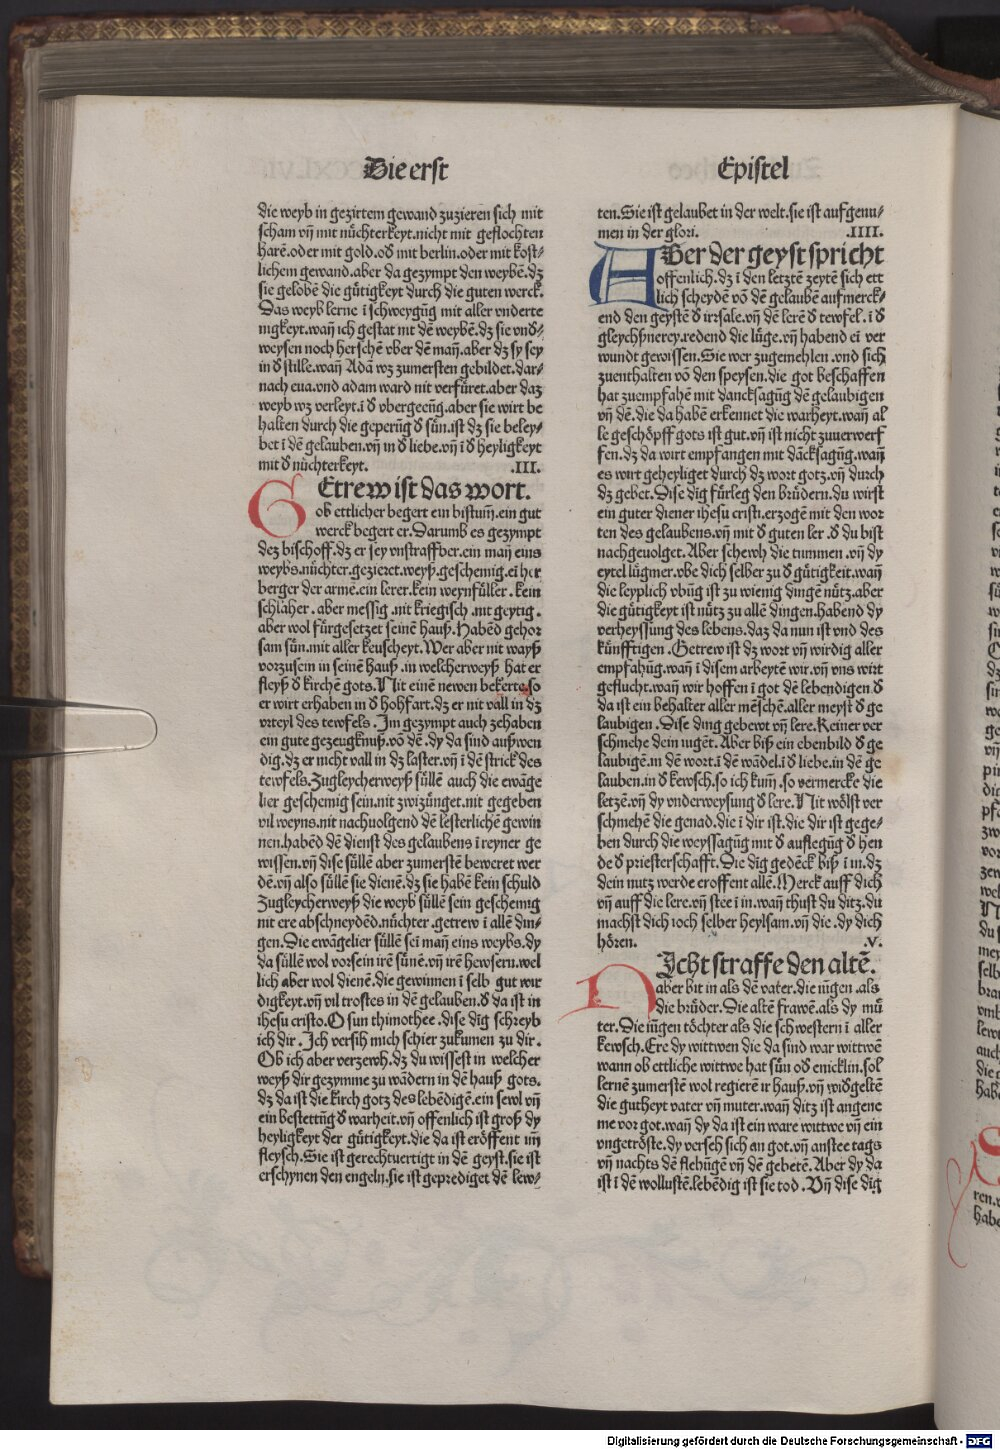 Die erst
Epistel
die weyb in gezirtem gewand zuzieren sich mit
scham vñ mit nüchterkeyt. nicht mit geflochten
harē. oder mit gold. oď mit berlin. oder mit köst-
lichem gewand. aber da gezympt den weybē. dz
sie gelobē die gütigkeyt durch die guten werck.
Das weyb lerne ī schweygūg mit aller vnderte
nigkeyt. wañ ich gestat nit dē weybē. dz sie vnď-
weysen noch herschē vber dē mañ. aber dz sy sey
in ď stille. wañ Adā wz zumersten gebildet. dar-
nach eua. vnd adam ward nit verfüret. aber daz
weyb wz verleyt. ī ď vbergeeūg. aber sie wirt be
halten durch die geperūg ď sün. ist dz sie beley-
bet ī dē gelauben. vñ in ď liebe. vñ ī ď heyligkeyt
mit ď nüchterkeyt. .III.
GEtrew ist das wort.
ob ettlicher begert ein bistum̄. ein gut
werck begert er. Darumb es gezympt
dez bischoff. dz er sey vnstraffber. ein mañ eins
weybs. nüchter. gezieret. weyß. geschemig. eī her
berger der armē. ein lerer. kein weynfüller. kein
schlaher. aber messig. nit kriegisch. nit geytig.
aber wol fürgesetzet seinē hauß. Habēd gehor
sam sün. mit aller keuscheyt. Wer aber nit wayß
vorzusein in seinē hauß. in welcherweyß hat er
fleyß ď kirchē gots. Nit einē newen bekerte. so
er wirt erhaben in ď hohfart. dz er nit vall in dz
vrteyl des tewfels. Im gezympt auch zehaben
ein gute gezeugknuß. vō dē. dy da sind außwen
dig. dz er nicht vall in dz laster. vñ ī dē strick des
tewfels. Zugleycherweyß süllē auch die ewāge
lier geschemig sein. nit zwizünget. nit gegeben
vil weyns. nit nachuolgend dē lesterlichē gewin
nen. habēd dē dienst des gelaubens ī reyner ge
wissen. vñ dise süllē aber zumerstē beweret wer
dē. vñ also süllē sie dienē. dz sie habē kein schuld
Zugleycherweyß die weyb süllē sein geschemig
nit ere abschneydēd. nüchter. getrew ī allē din-
gen. Die ewāgelier süllē seī mañ eins weybs. dy
da süllē wol vorsein irē sünē. vñ irē hewsern. wel
lich aber wol dienē. die gewinnen ī selb gut wir
digkeyt. vñ vil trostes in dē gelauben. ď da ist in
ihesu cristo. O sun thimothee. dise dīg schreyb
ich dir. Ich versih mich schier zukumen zu dir.
Ob ich aber verzewh. dz du wissest in welcher
weyß dir gezymme zu wādern in dē hauß gots.
dz da ist die kirch gotz des lebēdigē. ein sewl vñ
ein bestettūg ď warheit. vñ offenlich ist groß dy
heyligkeyt der gütigkeyt. die da ist eröffent im̄
fleysch. Sie ist gerechtuertigt in dē geyst. sie ist
erschynen den engeln. sie ist geprediget dē lew-
ten. Sie ist gelaubet in der welt. sie ist aufgenu-
men in der glori. .IIII.
ABer der geyst spricht
offenlich. dz ī den letztē zeytē sich ett
lich scheydē vō dē gelaubē aufmerck-
end den geystē ď irsale. vñ dē lerē ď tewfel. ī ď
gleychßnerey. redend die lüge. vñ habend eī ver
wundt gewissen. Sie wer zugemehlen. vnd sich
zuenthalten vō den speysen. die got beschaffen
hat zuempfahē mit dancksagūg dē gelaubigen
vñ dē. die da habē erkennet die warheyt. wañ al
le geschöpff gots ist gut. vñ ist nicht zuuerwerf
fen. dz da wirt empfangen mit dācksagūg. wañ
es wirt geheyliget durch dz wort gotz. vñ durch
dz gebet. Dise dīg fürleg den brüdern. du wirst
ein guter diener ihesu cristi. erzogē mit den wor
ten des gelaubens. vñ mit ď guten ler. ď du bist
nachgeuolget. Aber schewh die tummen. vñ dy
eytel lügmer. vbe dich selber zu ď gütigkeit. wañ
die leyplich vbūg ist zu wienig dingē nütz. aber
die gütigkeyt ist nütz zu allē dingen. habend dy
verheyssung des lebens. daz da nun ist vnd des
künfftigen. Getrew ist dz wort vñ wirdig aller
empfahūg. wañ ī disem arbeytē wir. vñ vns wirt
geflucht. wañ wir hoffen ī got dē lebendigen. ď
da ist ein behalter aller mēschē. aller meyst ď ge
laubigen. Dise ding gebewt vñ lere. Keiner ver
schmehe dein iugēt. Aber biß ein ebenbild ď ge
laubigē. in dē wort. ī dē wādel. ī ď liebe. in dē ge
lauben. in ď kewsch. so ich kum̄. so vermercke die
letzē. vñ dy vnderweysung ď lere. Nit wölst ver
schmehē die genad. die ī dir ist. die dir ist gege-
ben durch die weyssagūg mit ď auflegūg ď hen
de ď priesterschafft. Die dīg gedēck biß ī in. dz
dein nutz werde eroffent allē. Merck auff dich
vñ auff die lere. vñ stee ī in. wañ thust du ditz. du
machst dich ioch selber heylsam. vñ die. dy dich
hören. .V.
NIcht straffe den altē.
aber bit in als dē vater. die iūgen. als
die brüder. Die altē frawē. als dy mü
ter. Die iūgen töchter als die schwestern ī aller
kewsch. Ere dy wittwen die da sind war wittwē
wann ob ettliche wittwe hat sün oď enicklin. sol
lernē zumerstē wol regierē ir hauß. vñ wiďgeltē
die gutheyt vater vñ muter. wañ ditz ist angene
me vor got. wañ dy da ist ein ware wittwe vñ ein
vngetröste. dy verseh sich an got. vñ anstee tags
vñ nachts dē flehūgē vñ dē gebetē. Aber dy da
ist ī dē wollustē. lebēdig ist sie tod. Vñ dise dīg
Digitalisierung gefördert durch die Deutsche Forschungsgemeinschaft - DFG